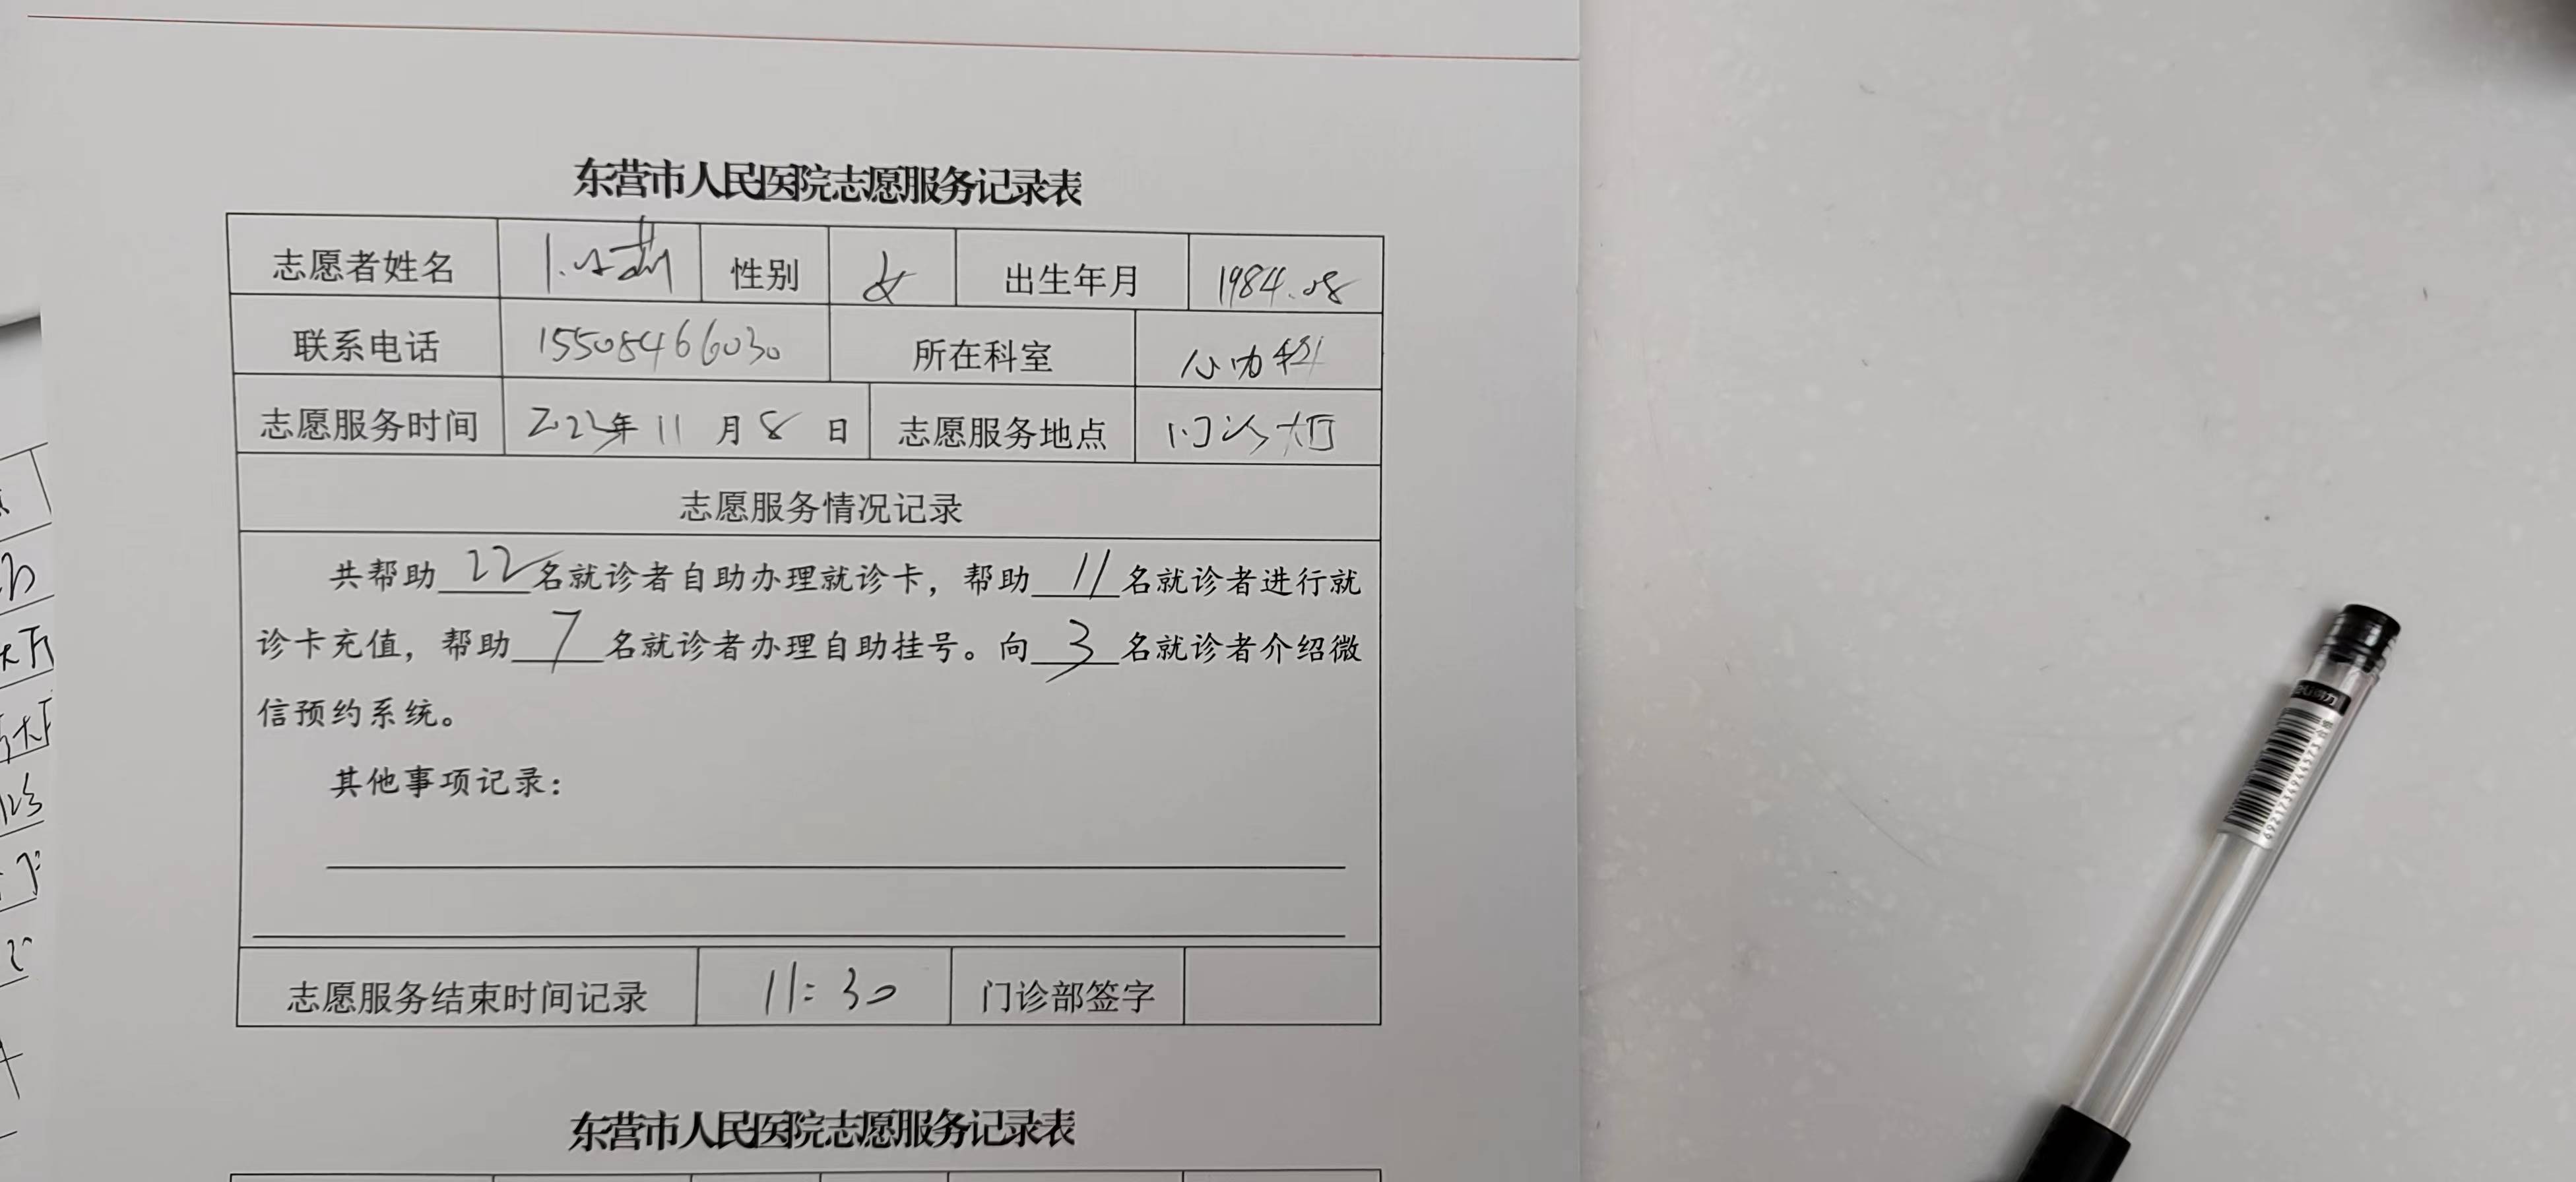 东营市人民医院志愿服务记录表
志愿者姓名 性别 女 出生年月 1984.08
联系电话 15508466030 所在科室 心内科
志愿服务时间 2022年 11 月 8 日 志愿服务地点 门诊大厅
志愿服务情况记录
共帮助 22 名就诊者自助办理就诊卡，帮助 11 名就诊者进行就
诊卡充值，帮助 7 名就诊者办理自助挂号。向 3 名就诊者介绍微
信预约系统。
其他事项记录：
志愿服务结束时间记录 11:30 门诊部签字
东营市人民医院志愿服务记录表
6921734944573